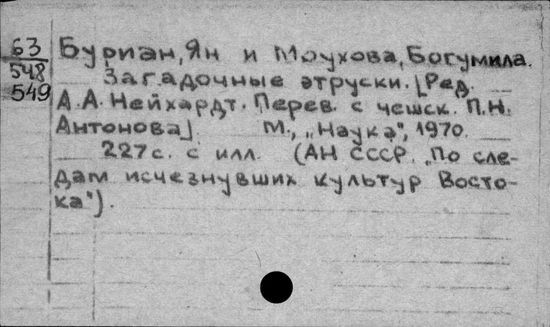 63
548
549
Буриан, Ян и Моухова, Богумила.
Загадочные этруски. [Ред.
А.А. Нейхардт. Перев. с чешск. П.Н.
Антонова]. М., „Наука", 1970.
227 с. с илл. (АН СССР. „По сле-
дам исчезнувших культур Восто-
ка").